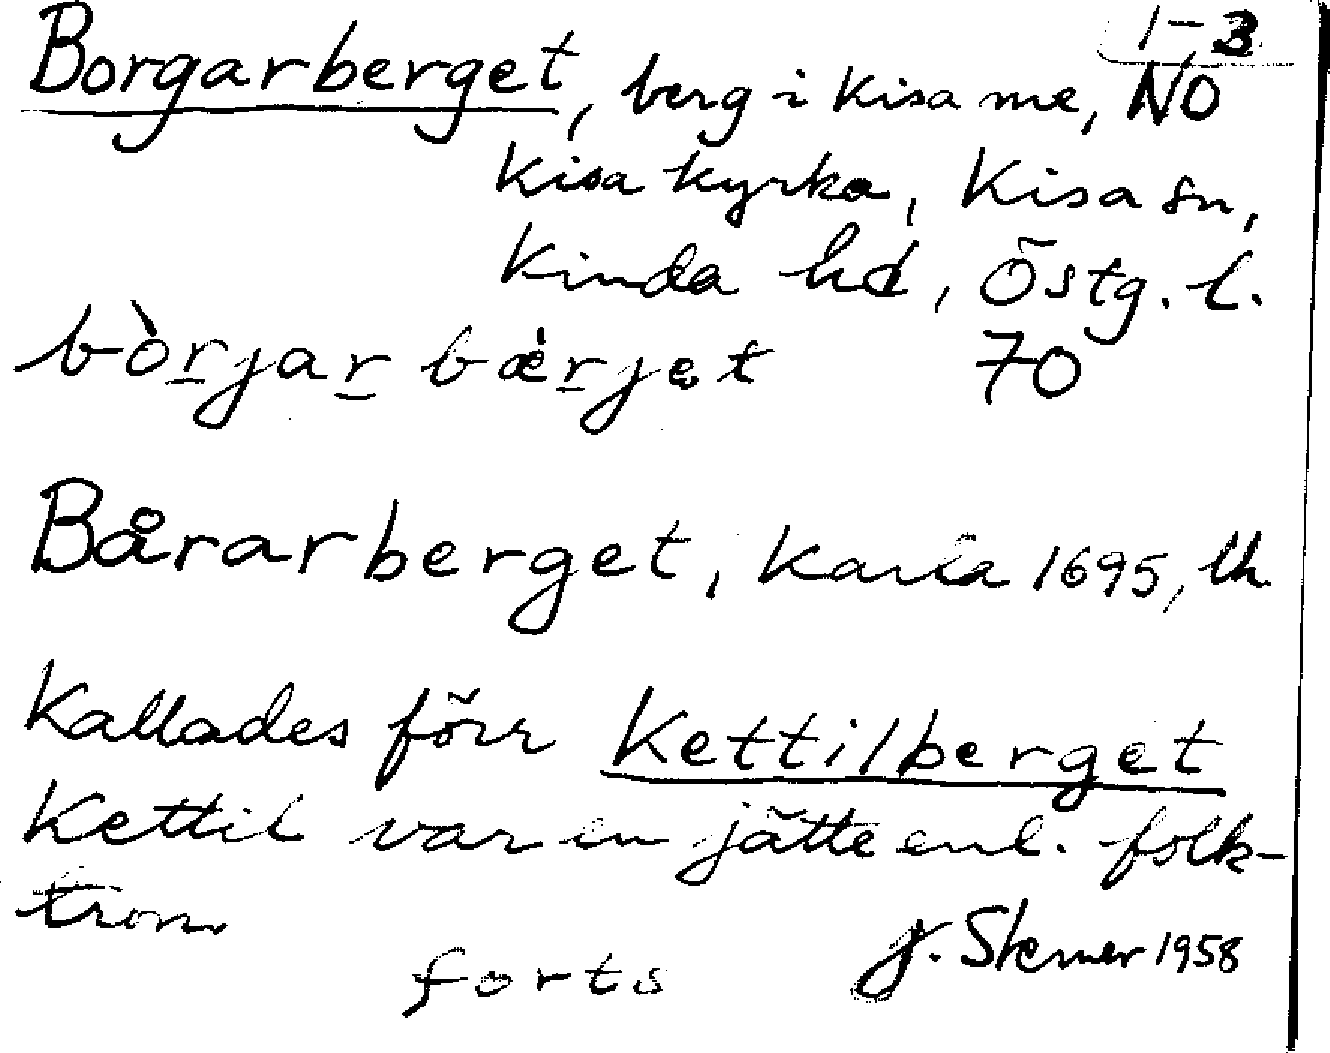 1-3
Borgarberget, berg i Kisa me, NO
Kisa kyrka, Kisa sn,
Kinda hd, Östg. l.
bòrjar bærjet 70
Bårarberget, Karta 1695, lh
Kallades förr Kettilberget
Kettil var en jätte enl. folk-
tron.
forts J. Sterner 1958